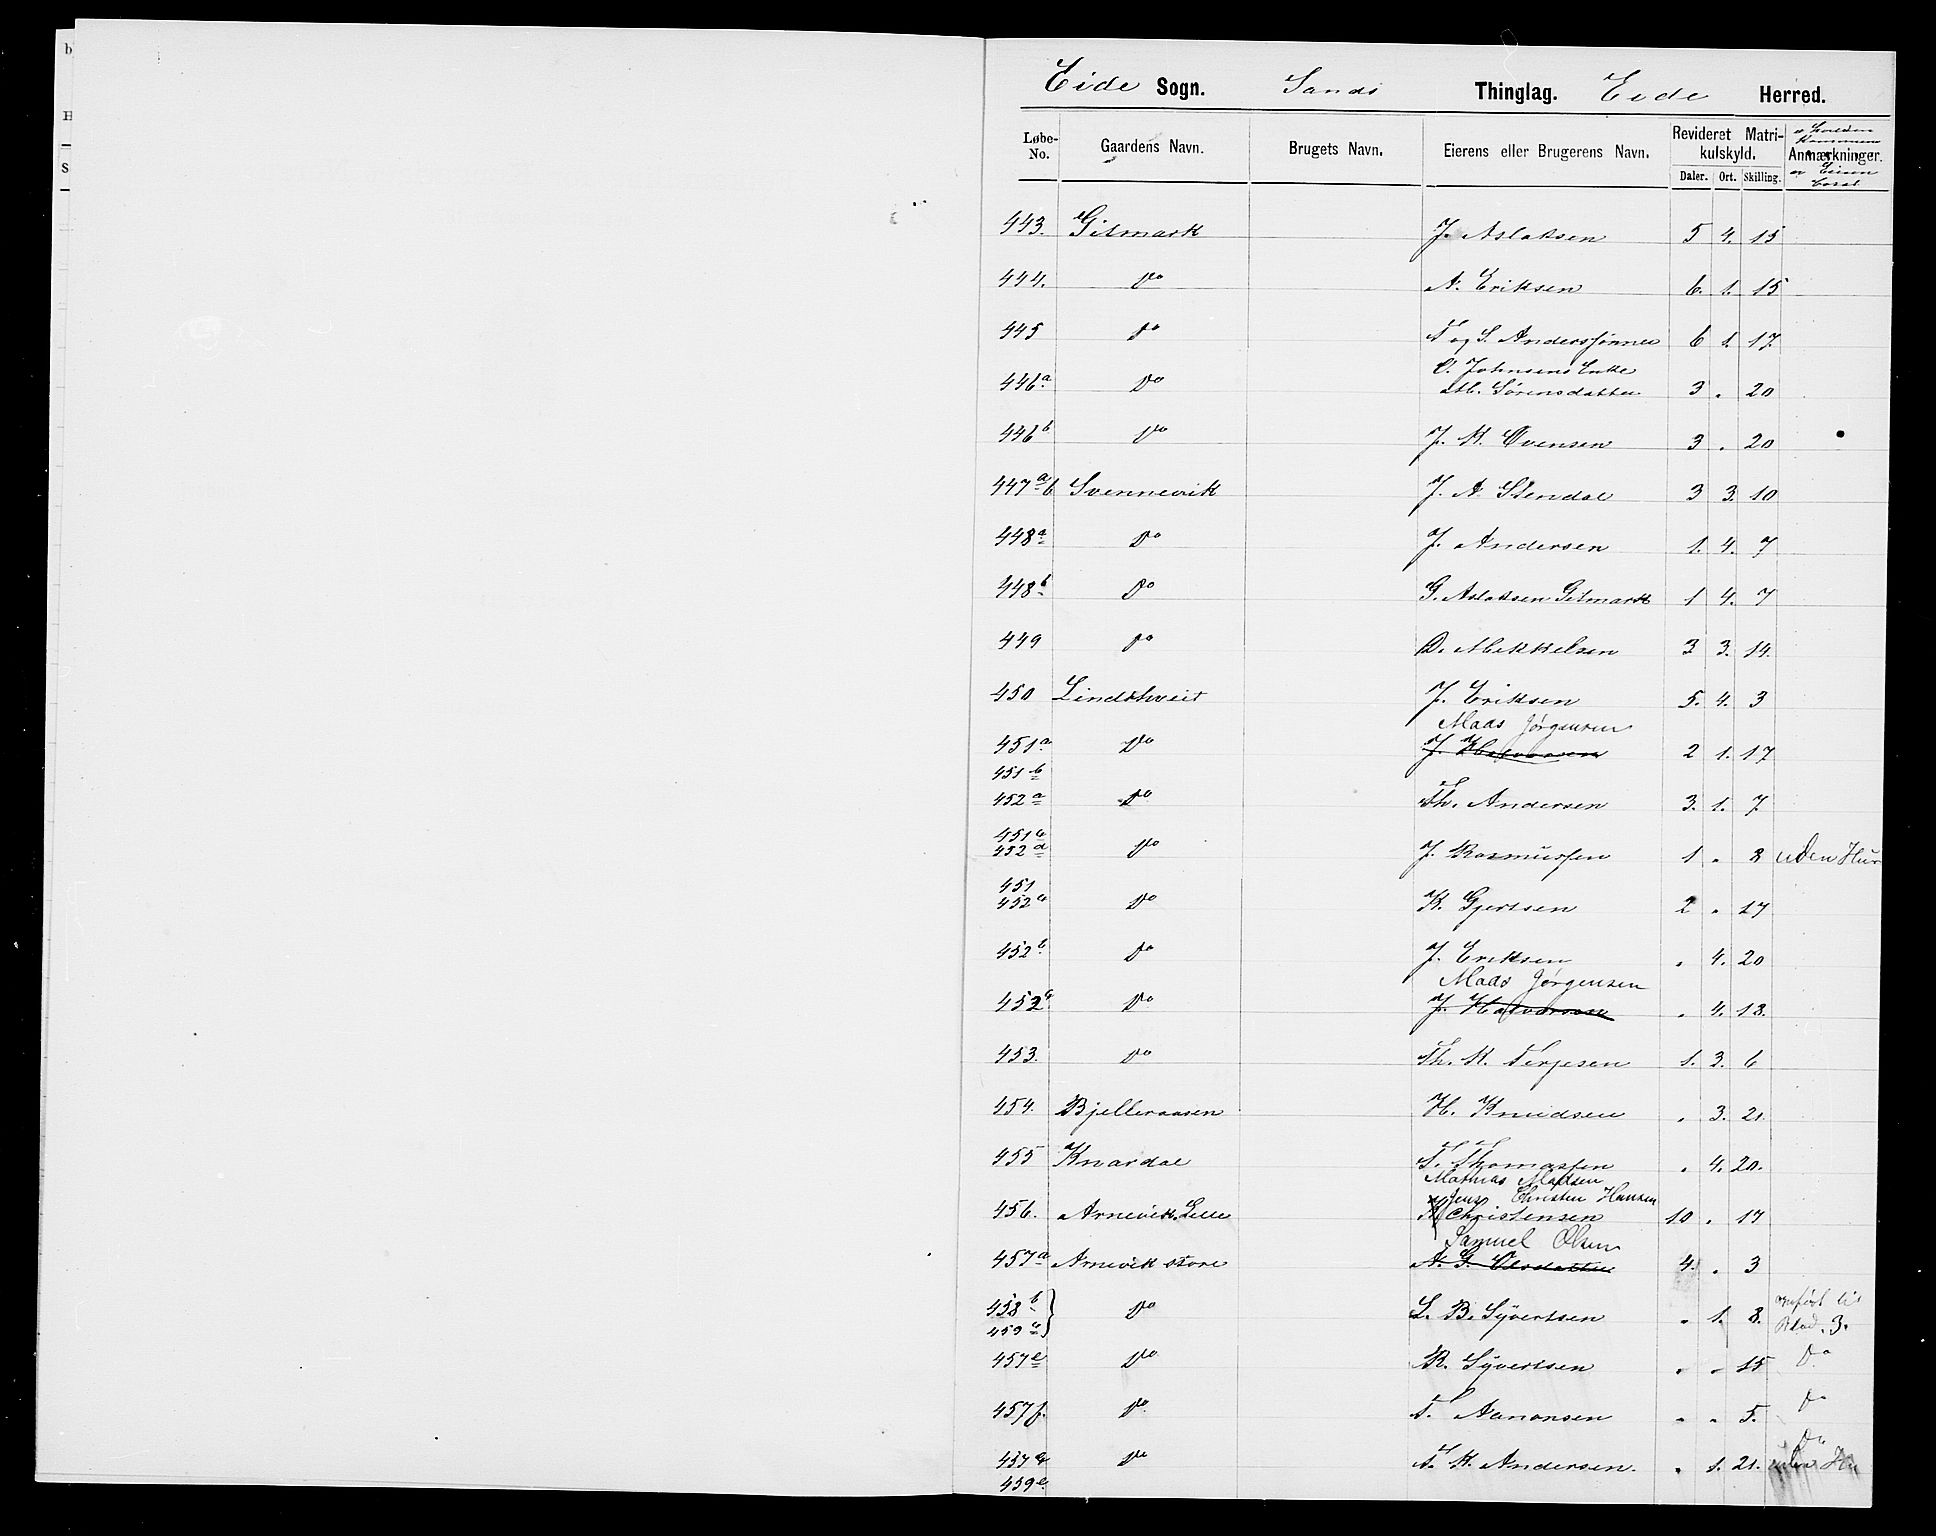 b
H
S
Eide Sogn. Sands Thinglag. Eide Herred.
Løbe-No. Gaardens Navn. Brugets Navn. Eierens eller Brugerens Navn. Revideret Matrikulskyld. Anmærkninger.
Daler. Ort. Skilling.
443. Gitmark J. Aslaksen 5 4. 15
444. Do N. Eriksen 6. 1. 15
445 Do T og S. Anderssønner 6 1. 17.
O. Johnsens Enke
446a Do M. Sørensdatter 3 . 20
446b Do J. K. Ovensen 3 . 20
447a b Svennevik J. A. Stendal 3 3. 10
448a Do J. Andersen 1. 4. 7
448b Do G. Aslaksen Gitmark 1 4. 7
449 Do D. Mikkelsen 3 3. 14.
450 Lindthveit J. Eriksen 5. 4. 3
Mads Jørgensen
451a Do J. Halvorsen 2 1. 17
451b
452a Do Th. Andersen 3. 1. 7.
451c
452d Do J. Rasmussen 1 . 2 uden Hus
451
452c Do K. Gjertsen 2 . 17
452b Do J. Eriksen . 4. 20
Mads Jørgensen
452 Do J. Halvorsen . 4. 18.
453. Do Th. K. Terjesen 1. 3. 6
454. Bjelleraasen H. Knudsen . 3. 21.
455 Knardal T. Thomassen . 4. 20.
Mathias Madsen
Jens Christen Hansen
456. Arnevik, Lille Christensen 10 . 17
Samuel Olsen
457a Arnevik store A. G. Olsdatter 4. . 3
458b
459a Do L. B. Syvertsen . 1. 8. opført til Blad. 3.
457e Do R. Syvertsen . . 15 Do
457f. Do T. Aanonsen . . 5. Do
Do
457 Do T. K. Andersen. . 1. 21. uden Hu
459e